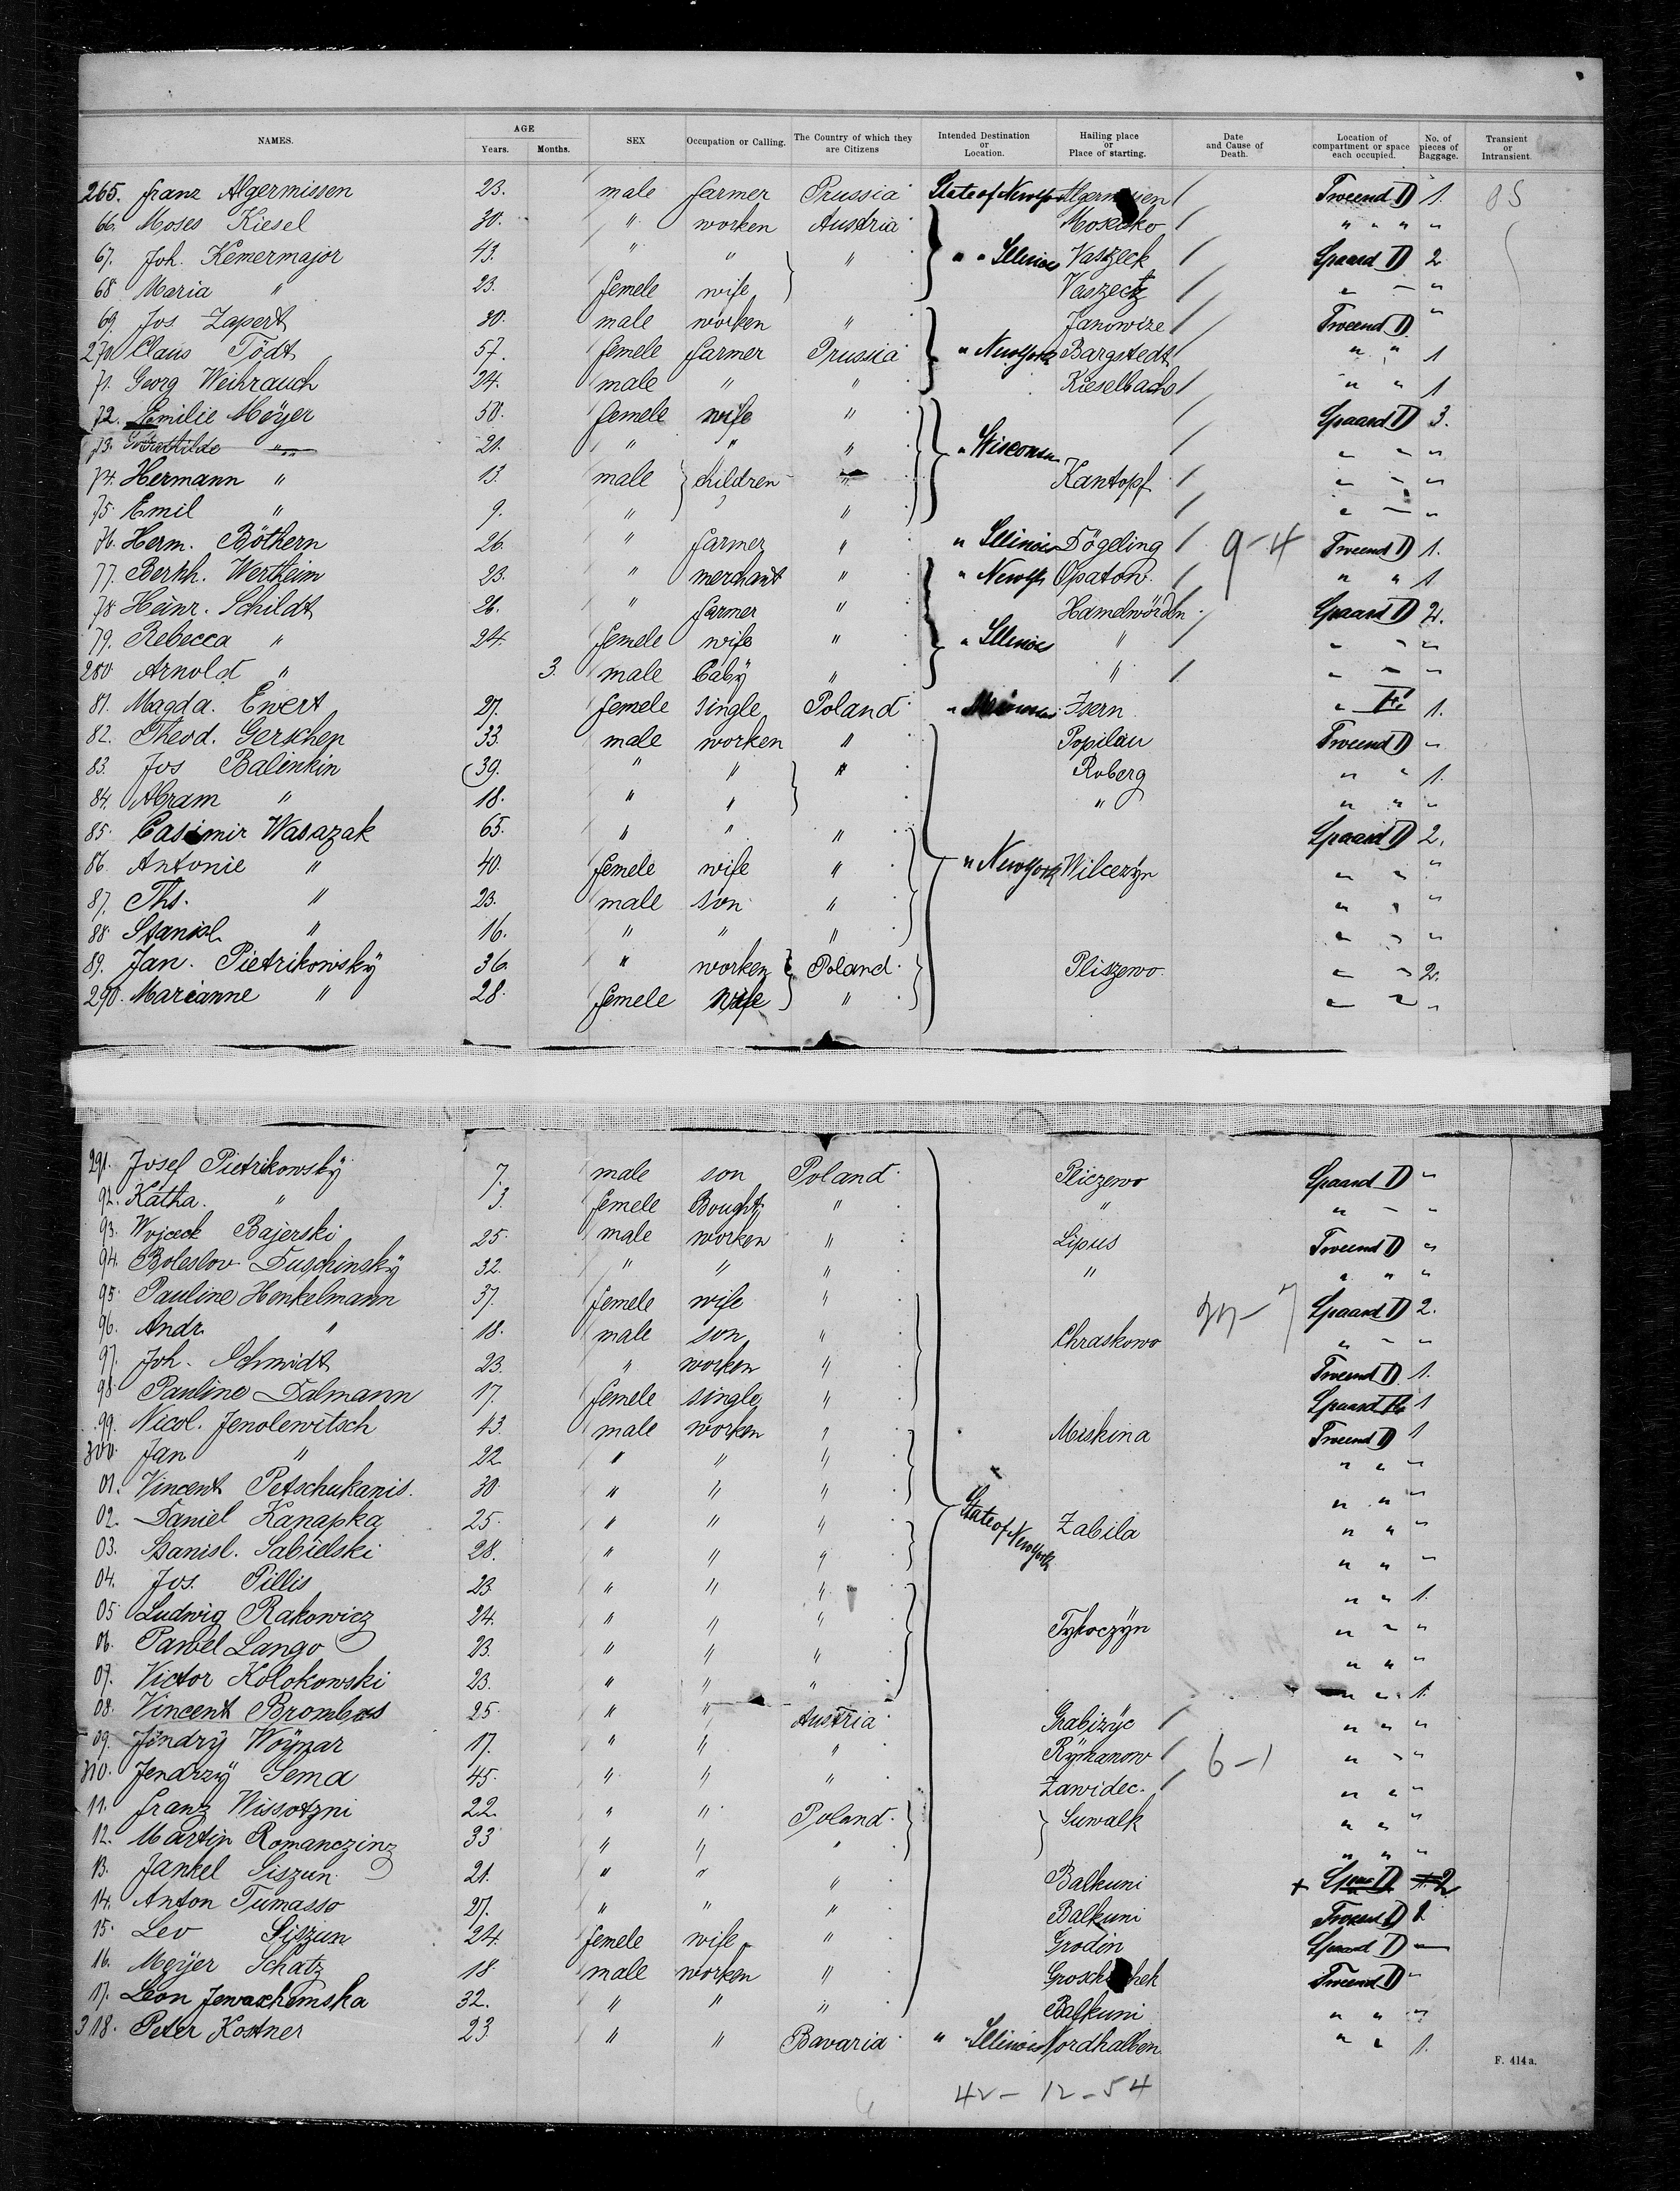 NAMES. AGE Years. Months. SEX Occupation or Calling. The Country of which they are Citizens Intended Destination or Location. Hailing place or Place of starting. Date and Cause of Death. Location of compartment or space each occupied. No. of pieces of Baggage. Transient or Intransient.
265. Franz Algermissen 23. male farmer Prussia State of New York Tweend D 1.
66. Moses Kiesel 30. " worken Austria " " " "
67. Joh. Kemermajor 43. " " " " " Illinois Vaszeck Spaard D 2
68 Maria " 23. femele wife Vaszectz " " "
69. Jos Zapert 30. male worken " Janowize Tweend D "
270 Claus Tödt 57. femele farmer Prussia " New York Bargstedt " " 1
71. Georg Weihrauch 24. male " " Kieselbach " " 1
72. Emilie Meÿer 50. femele wife " Spaard D 3.
73. " 21. " " " " Wisconsin " " "
74. Hermann " 13. male children " Kantopf " " "
75. Emil " 9. " " " " "
76. Herm. Böthern 26. " farmer " " Illinois Dögeling 9-4 Tweend D 1.
77. Bernh. Wertheim 23. " merchant " " New York Opatow. " " 1
78 Heinr. Schildt 26. " farmer " Hamelwörden Spaard D 2.
79. Rebecca " 24. femele wife " " Illinois " " " "
280. Arnold " 3. male baby " " " " "
81. Magda. Ewert 27. femele single Poland " Isern " 1.
82. Theod. Gerschen 33. male worken " Popilau Tweend D "
83. Jos Balinkin 39. " " " Roberg " " 1.
84. Abram " 18. " " " " " "
85. Casimir Wasazak 65. " " " Spaard D 2.
86. Antonie " 40. femele wife " " New York Wilcezyn " " "
87. Ths. " 23. male son " " " "
88. Stanisl. " 16. " " " " " "
89. Jan. Pietrikowskÿ 36. " worken Poland Pliszewo " " 2.
290. Marianne " 28. femele wife " " " "
291. Josef Pietrikowskÿ 7. male son Poland Pliczewo Spaard D "
92. Katha. " 3. femele " " " " "
93. Wojceck Bajerski 25. male worken " Lipus Tweend D "
94. Boleslov Duschinskÿ 32. " " " " " " "
95. Pauline Henkelmann 37. femele wife " Spaard D 2.
96. Andr. " 18. male son " Chraskowo " " "
97. Joh. Schmidt 23. " worken " Tweend D 1.
98. Pauline Dalmann 17. femele single " Spaard 1
99. Nicol. Jenolewitsch 43. male worken " Miskina Tweend D 1
300. Jan " 22 " " " " " "
01. Vincent Petschukanis. 30. " " " " " "
02. Daniel Kanapka 25. " " " State of New York Zabila " " "
03. Stanisl. Sabielski 28. " " " " " "
04. Jos. Pillis 23 " " " " " 1.
05. Ludwig Rakowicz 24. " " " Tykoczÿn " " "
06. Pawel Lango 23. " " " " " "
07. Victor Kolokowski 23. " " " " " 1.
08. Vincent Brombas 25. " " Austria Grabizÿc " " "
09. Jöndrÿ Woÿnar 17. " " " Rÿmanow 6-1 " " "
310. Jendrzÿ Sema 45. " " " Zawidec. " " "
11. Franz Wissotzni 22. " " Poland Suwalk " " "
12. Martin Romanczinz 33 " " " " " "
13. Jankel Siszun 21. " " " Balkuni + D 2
14. Anton Tumasso 27. " " " Balkuni Tweend D 1
15. Lev Siszun 24 femele wife " Grodin Spaard D —
16. Meÿer Schatz 18. male worken " Tweend D "
17. Leon Jewaschimska 32. " " " Balkuni " " "
318. Peter Kostner 23 " " Bavaria " Illinois Nordhalben " " 1.
F. 414 a.
42 - 12 - 54